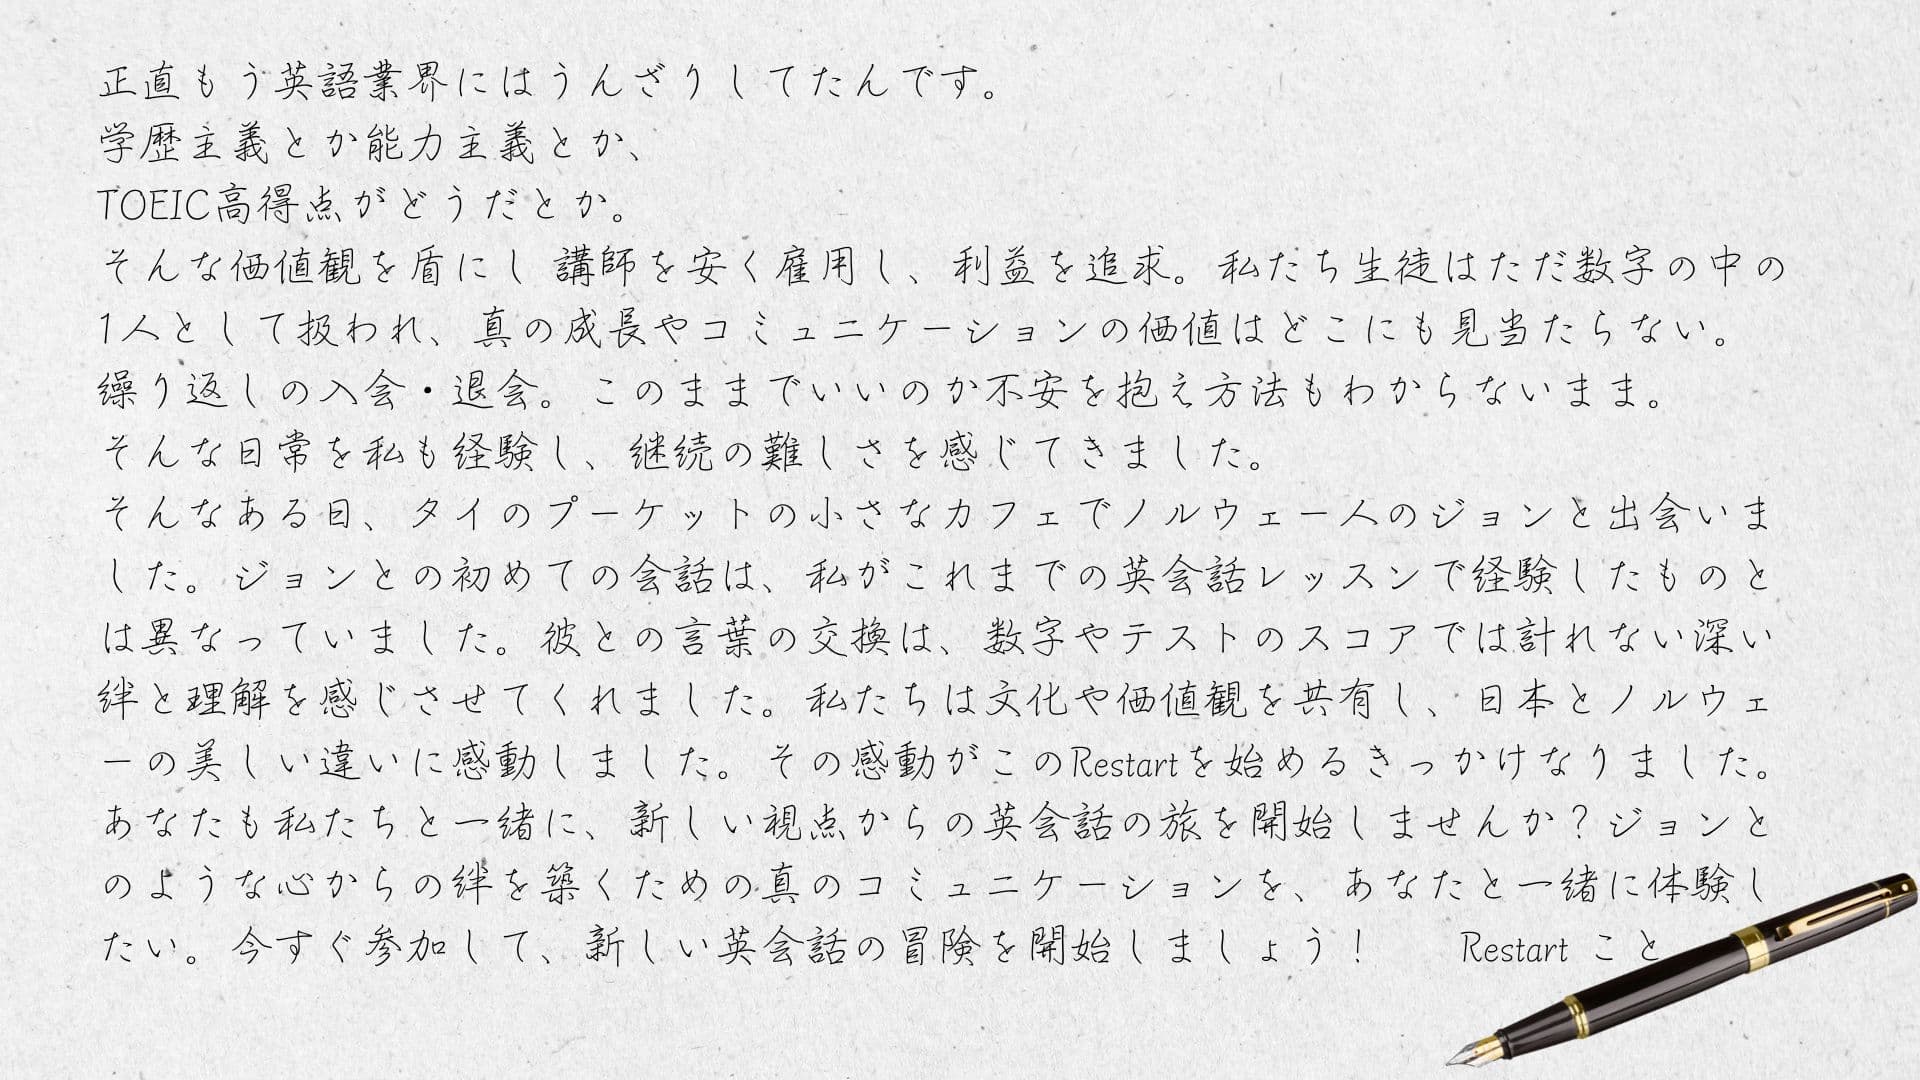 正直もう英語業界にはうんざりしてたんです。
学歴主義とか能力主義とか、
TOEIC高得点がどうだとか。
そんな価値観を盾にし 講師を安く雇用し、利益を追求。私たち生徒はただ数字の中の
1人として扱われ、真の成長やコミュニケーションの価値はどこにも見当たらない。
繰り返しの入会・退会。このままでいいのか不安を抱え方法もわからないまま。
そんな日常を私も経験し、継続の難しさを感じてきました。
そんなある日、タイのプーケットの小さなカフェでノルウェー人のジョンと出会いま
した。ジョンとの初めての会話は、私がこれまでの英会話レッスンで経験したものと
は異なっていました。彼との言葉の交換は、数字やテストのスコアでは計れない深い
絆と理解を感じさせてくれました。私たちは文化や価値観を共有し、日本とノルウェ
ーの美しい違いに感動しました。その感動がこのRestartを始めるきっかけなりました。
あなたも私たちと一緒に、新しい視点からの英会話の旅を開始しませんか？ジョンと
のような心からの絆を築くための真のコミュニケーションを、あなたと一緒に体験し
たい。今すぐ参加して、新しい英会話の冒険を開始しましょう！　　Restart こと